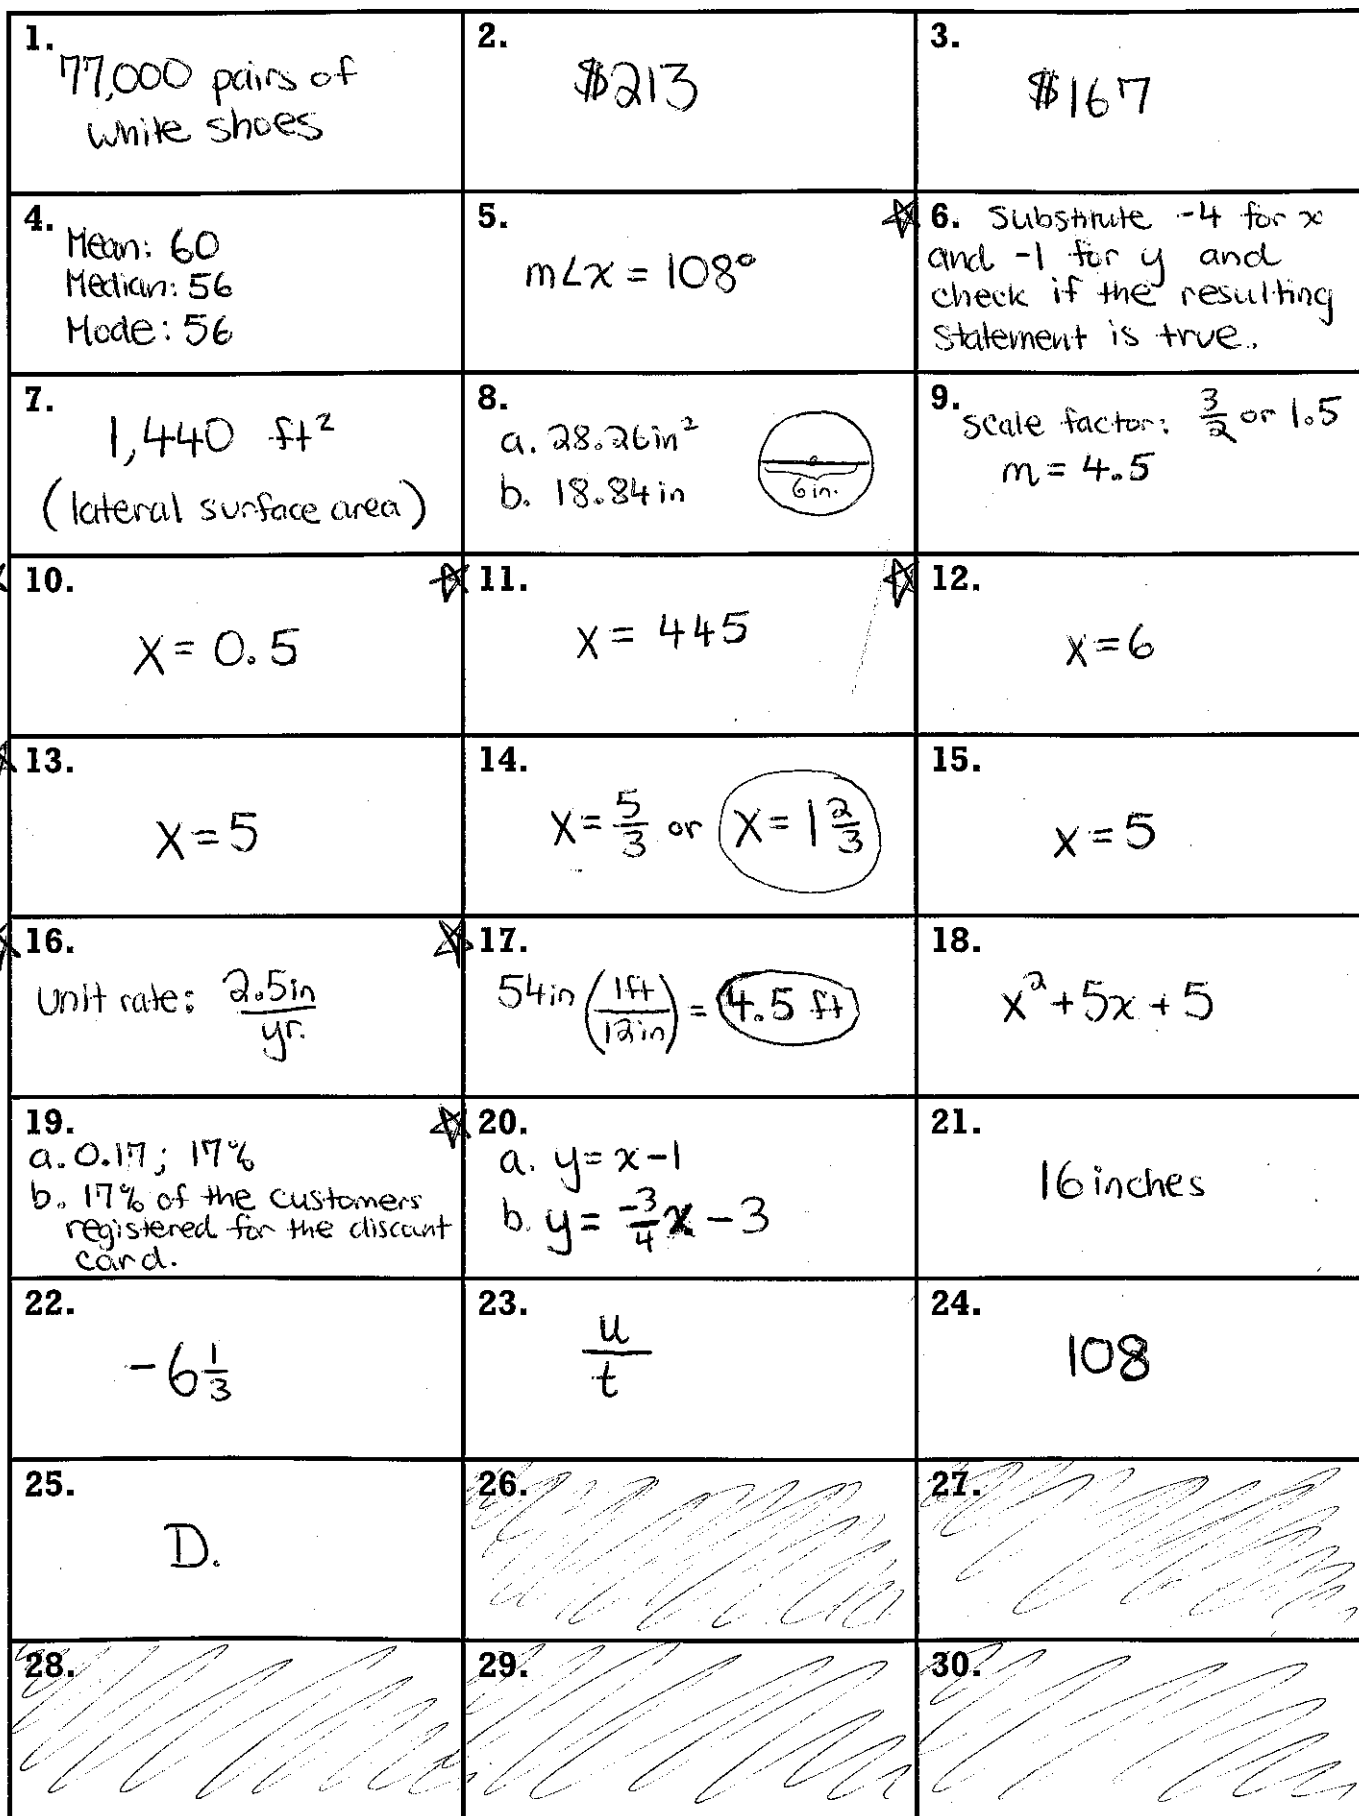 1.
77,000 pairs of
white shoes
2.
$213
3.
$167
4.
Mean: 60
Median: 56
Mode: 56
5.
m∠x = 108°
6. Substitute -4 for x
and -1 for y and
check if the resulting
statement is true.
7.
1,440 ft²
(lateral surface area)
8.
a. 28.26in²
b. 18.84in
6in.
9.
scale factor: 3/2 or 1.5
m = 4.5
10.
x = 0.5
11.
x = 445
12.
x = 6
13.
x = 5
14.
x = 5/3 or x = 1 2/3
15.
x = 5
16.
Unit rate: 2.5in/yr.
17.
54in (1ft/12in) = 4.5 ft
18.
x² + 5x + 5
19.
a. 0.17; 17%
b. 17% of the customers
registered for the discount
card.
20.
a. y = x - 1
b. y = -3/4 x - 3
21.
16 inches
22.
-6 1/3
23.
u/t
24.
108
25.
D.
26.
27.
28.
29.
30.